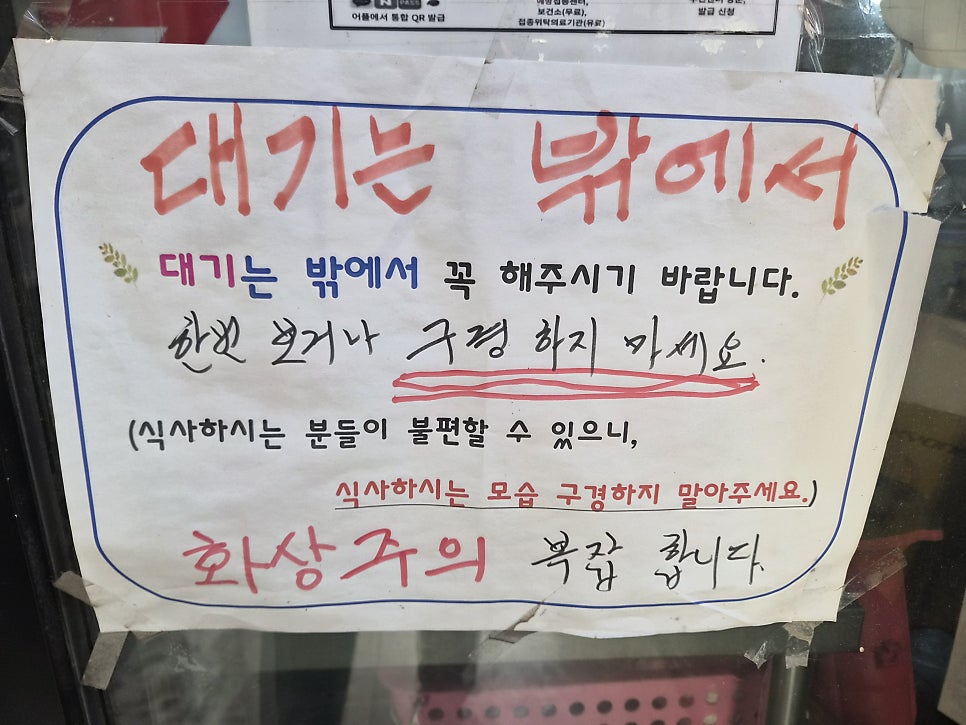 PASS
어플에서 통합 QR 발급
예방접종센터,
보건소(무료),
접종위탁의료기관(유료)
발급 신청
대기는 밖에서
대기는 밖에서 꼭 해주시기 바랍니다.
한번 보거나 구경 하지 마세요.
(식사하시는 분들이 불편할 수 있으니,
식사하시는 모습 구경하지 말아주세요.)
화상주의 복잡 합니다.